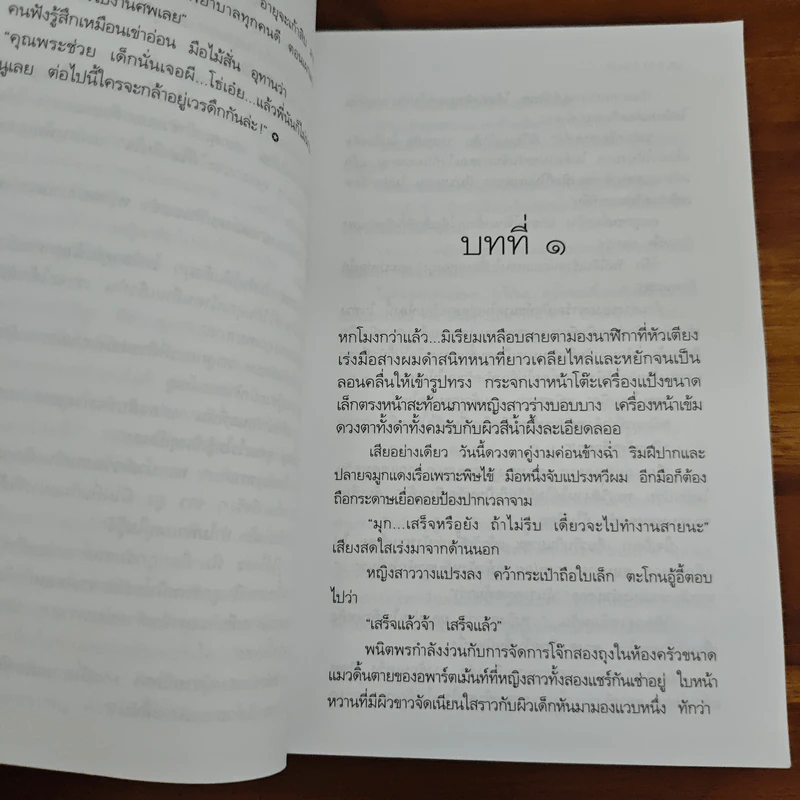 อายุจะเก้าสิบ
พยาบาลทุกคนดี
ไปงานศพเลย”
คนฟังรู้สึกเหมือนเข่าอ่อน มือไม้สั่น อุทานว่า
“คุณพระช่วย เด็กนั่นเจอผี...โธ่เอ๋ย...แล้วพี่นันก็
นูเลย ต่อไปนี้ใครจะกล้าอยู่เวรดึกกันล่ะ!”
บทที่ ๑
หกโมงกว่าแล้ว...มิเรียมเหลือบสายตามองนาฬิกาที่หัวเตียง
เร่งมือสางผมดำสนิทหนาที่ยาวเคลียไหล่และหยักจนเป็น
ลอนคลื่นให้เข้ารูปทรง กระจกเงาหน้าโต๊ะเครื่องแป้งขนาด
เล็กตรงหน้าสะท้อนภาพหญิงสาวร่างบอบบาง เครื่องหน้าเข้ม
ดวงตาทั้งดำทั้งคมรับกับผิวสีน้ำผึ้งละเอียดลออ
เสียอย่างเดียว วันนี้ดวงตาคู่งามค่อนข้างฉ่ำ ริมฝีปากและ
ปลายจมูกแดงเรื่อเพราะพิษไข้ มือหนึ่งจับแปรงหวีผม อีกมือก็ต้อง
ถือกระดาษเยื่อคอยป้องปากเวลาจาม
“มุก...เสร็จหรือยัง ถ้าไม่รีบ เดี๋ยวจะไปทำงานสายนะ”
เสียงสดใสเร่งมาจากด้านนอก
หญิงสาววางแปรงลง คว้ากระเป๋าถือใบเล็ก ตะโกนอู้อี้ตอบ
ไปว่า
“เสร็จแล้วจ้า เสร็จแล้ว”
พนิตพรกำลังง่วนกับการจัดการโจ๊กสองถุงในห้องครัวขนาด
แมวดิ้นตายของอพาร์ตเม้นท์ที่หญิงสาวทั้งสองแชร์กันเช่าอยู่ ใบหน้า
หวานที่มีผิวขาวจัดเนียนใสราวกับผิวเด็กหันมามองแวบหนึ่ง ทักว่า